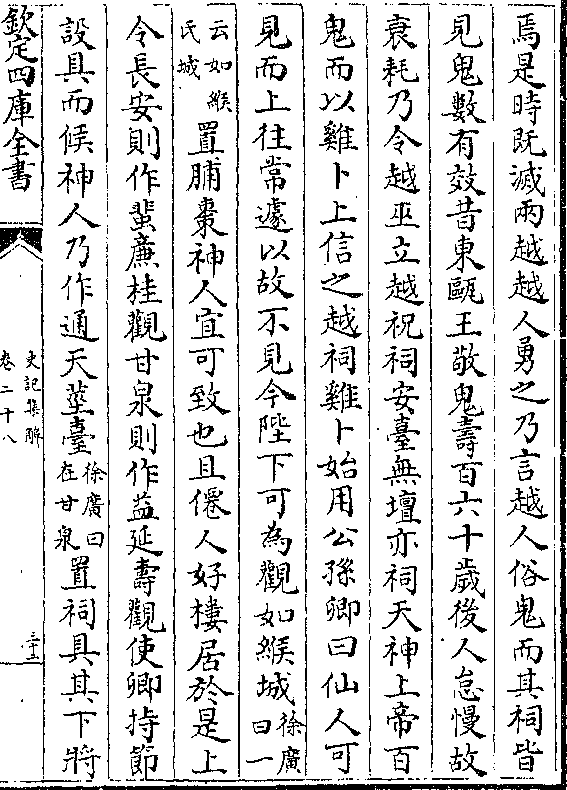 焉是時旣滅兩越越人勇之乃言越人俗鬼而其祠皆
見鬼數有效昔東甌王敬鬼壽百六十歲後人怠慢故
衰耗乃令越巫立越祝祠安臺無壇亦祠天神上帝百
鬼而以雞卜上信之越祠雞卜始用公孫卿曰仙人可
見而上往常遽以故不見今陛下可為觀如緱城徐廣曰一
云如緱氏城置脯棗神人宜可致也且僊人好樓居於是上
令長安則作蜚廉桂觀甘泉則作益延壽觀使卿持節
設具而候神人乃作通天莖臺徐廣曰在甘泉置祠具其下將
欽定四庫全書
史記集解
卷二十八
三十二